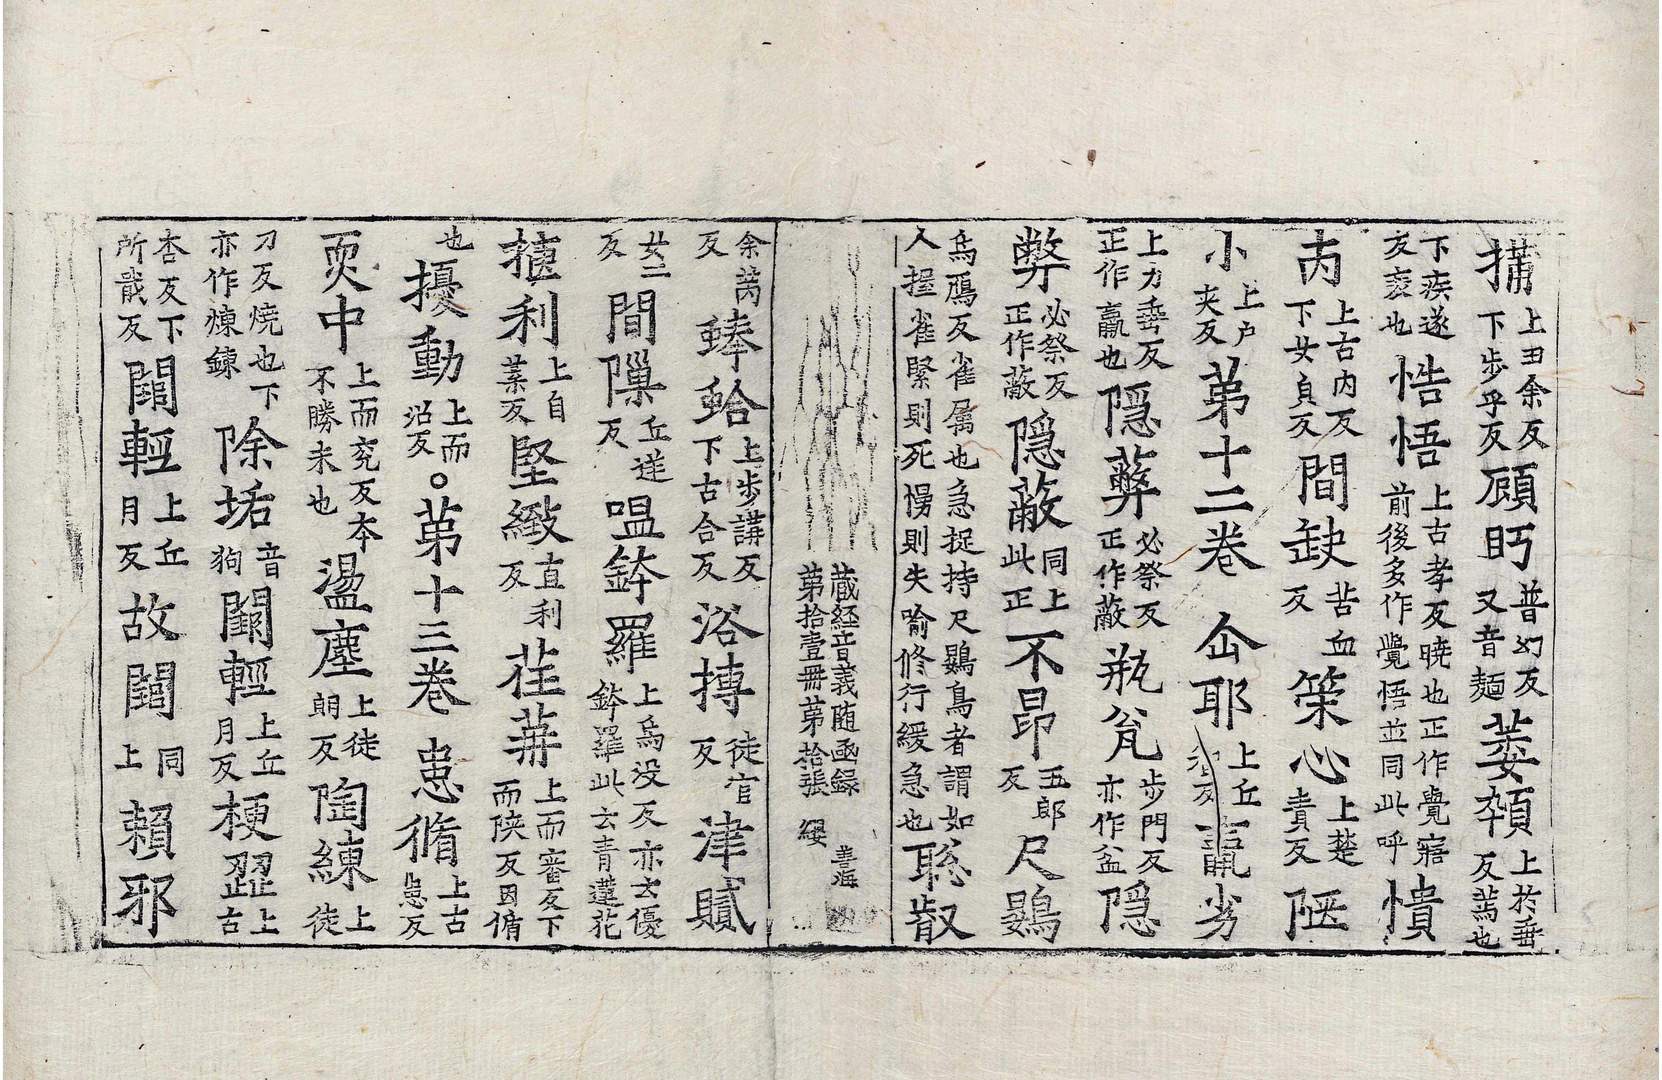 捕上田余反下步乎反顧眄普幻反又音麵萎𩓣上於垂反蔫也
下疾遂反㾕也悎悟上古孝反曉也正作覺寤前後多作覺悟並同此呼憒
丙上古内反下女貞反間缺苦血反策心上楚責反陿
小上户夾反苐十二卷 仚耶上丘反羸劣
上力垂反正作羸也隱𧀼必祭反正作蔽瓶瓫步門反亦作盆隱
弊必祭反正作蔽隱蔽同上此正不昂五郎反尺鷃
烏鴈反雀属也急捉持尺鷃鳥者謂如人握雀緊則死慢則失喻修行緩急也聡叡
藏経音義随函録
第拾壹冊苐拾張 纓
余芮反䗦蛤上步講反下古合反浴摶徒官反津膩
女二反間隟丘逆反嗢鉢羅上烏没反亦云優鉢羅此云青蓮花
𦸐利上自蒺反堅緻直利反荏苒上而審反下而陝反因循
也擾動上而沼反。苐十三卷 患循上古患反
耎中上而兖反本不勝未也盪塵上徒朗反陶練上徒
刀反燒也下亦作煉鍊除垢音狗闚輕上丘月反梗澀上古
杏反下所戢反闚輕上丘月反故闚同上賴邪